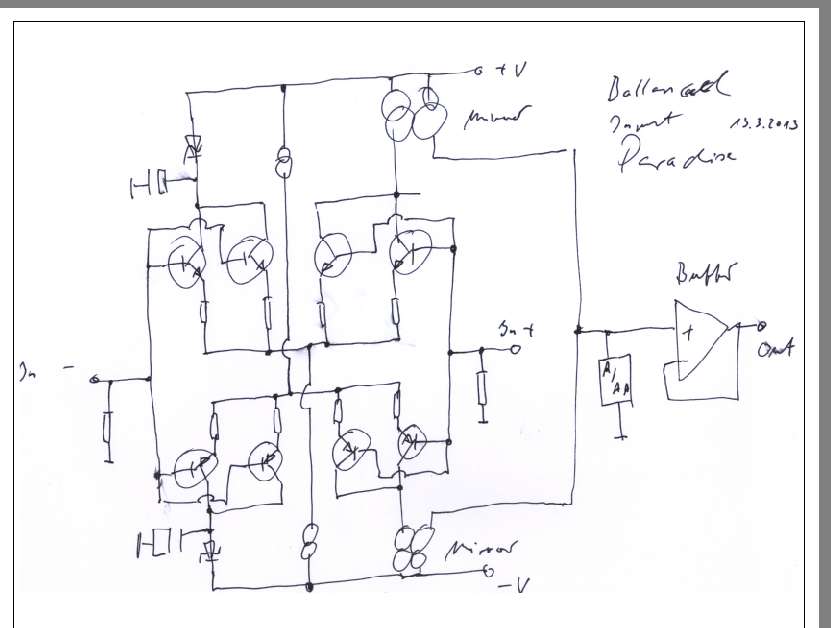 +V
Ballanced
Input 13.3.2013
Paradise
Mirror
Buffer
In +
+
Out
In -
A/
AA
Mirror
-V